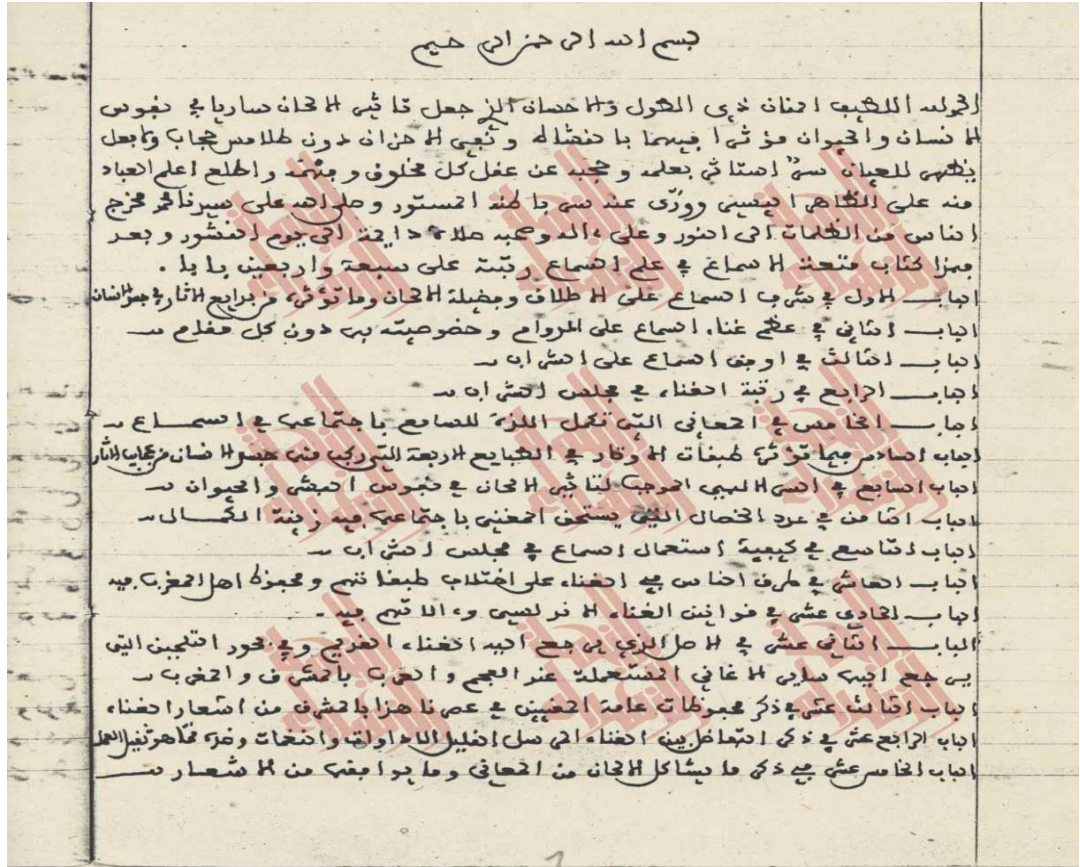 بسم الله الرحمن الرحيم
الحمد لله اللطيف المنان ذي الطول والاحسان الذي جعل تاثير الالحان ساريا في نفوس
الانسان والحيوان مؤثرا فيهما بانفضاله ونفى الاحزان دون طلامس حجاب
يظهر للعيان سر استاثر بعلمه وحجبه عن عقل كل مخلوق وبهمه واطلع اعلم العباد
منه على الظاهر اليسير وورى عنه سر باطنه المستور وصلى الله على سيدنا محمد مخرج
الناس من الظلمات الى النور وعلى ءاله وصحبه صلاة دايمة الى يوم النشور وبعد
فهذا كتاب متعة الاسماع في علم السماع رتبته على سبعة واربعين بابا .
الباب الاول في شرف السماع على الاطلاق وفضيلة الالحان وما تؤثره من بدايع الاثار في جنس الانسان
الباب الثاني في عظم غناء السماع على المدام وخصوصيته به دون كل مطعم
الباب الثالث في اوجه السماع على الشراب
الباب الرابع في رتبة الغناء في مجلس الشراب
الباب الخامس في المعاني التي تكمل اللذة للسامع باجتماعها في السماع
الباب السادس فيما تؤثره طبقات الاوتار في الطبايع الاربعة التي ركب منها جنس الانسان من عجايب الاثار
الباب السابع في السر الالهي الموجب لتاثير الالحان في نفوس البشر والحيوان
الباب الثامن في عدد الخصال التي يستحق المغني باجتماعها فيه رتبة الكمال
الباب التاسع في كيفية استعمال السماع في مجلس الشراب
الباب العاشر في طرق الناس في الغناء على اختلاف طبقاتهم ومحفوظ اهل المغرب فيه
الباب الحادي عشر في قوانين الغناء الاندلسي وءالاتهم فيه .
الباب الثاني عشر في الاصل الذي يرجع اليه الغناء القديم وفي بحور التلحين التي
يرجع اليها ساير الاغاني المستعملة عند العجم والعرب بالمشرق والمغرب
الباب الثالث عشر في ذكر محفوظات عامة المغنيين في عصرنا هذا بالمشرق من اشعار الغناء
الباب الرابع عشر في ذكر التفاضل بين الغناء المرسل القليل الاداوات والنغمات وضده مما هو ثقيل العمل
الباب الخامس عشر في ذكر ما يشاكل الالحان من المعاني وما يوافقها من الاشعار